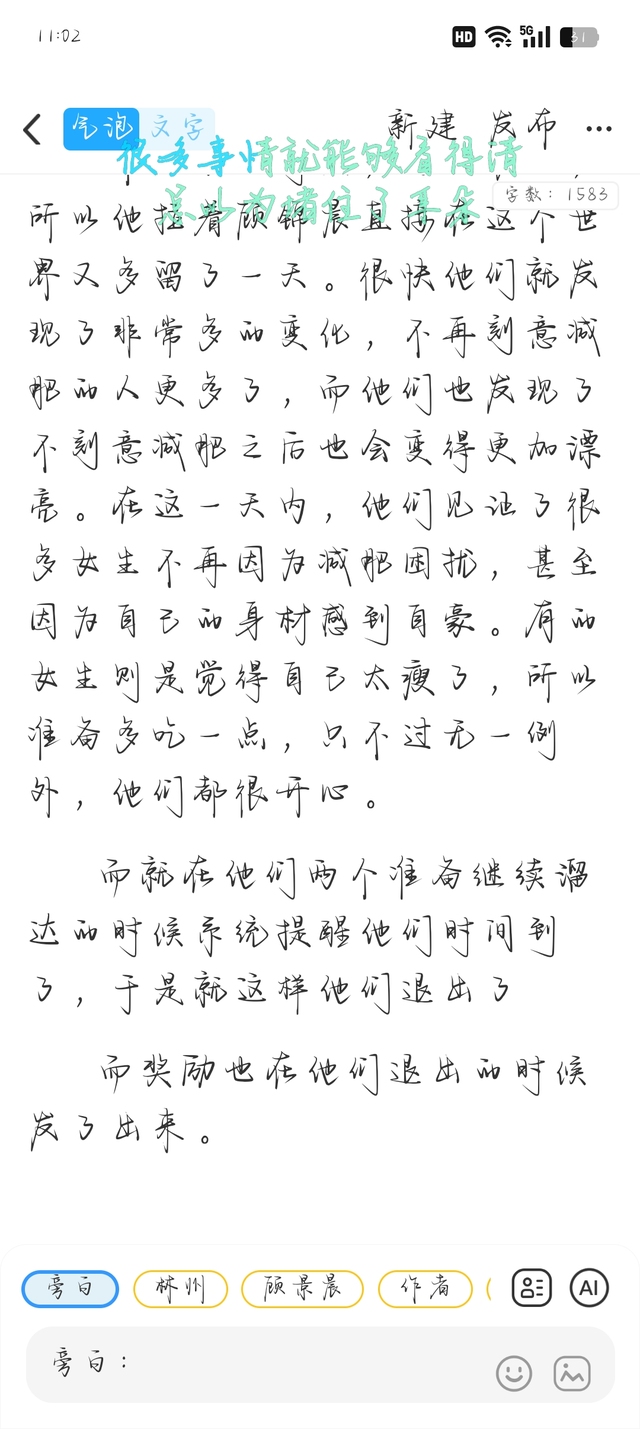 11:02
HD 5G 31
气泡 文字 新建 发布 ...
很多事情就能够看得清
总以为捂住了耳朵
字数：1583
所以他拉着顾锦晨直接在这个世
界又多留了一天。很快他们就发
现了非常多的变化，不再刻意减
肥的人更多了，而他们也发现了
不刻意减肥之后也会变得更加漂
亮。在这一天内，他们见证了很
多女生不再因为减肥困扰，甚至
因为自己的身材感到自豪。有的
女生则是觉得自己太瘦了，所以
准备多吃一点，只不过无一例
外，他们都很开心。
而就在他们两个准备继续溜
达的时候系统提醒他们时间到
了，于是就这样他们退出了
而奖励也在他们退出的时候
发了出来。
旁白 林州 顾景晨 作者 AI
旁白：